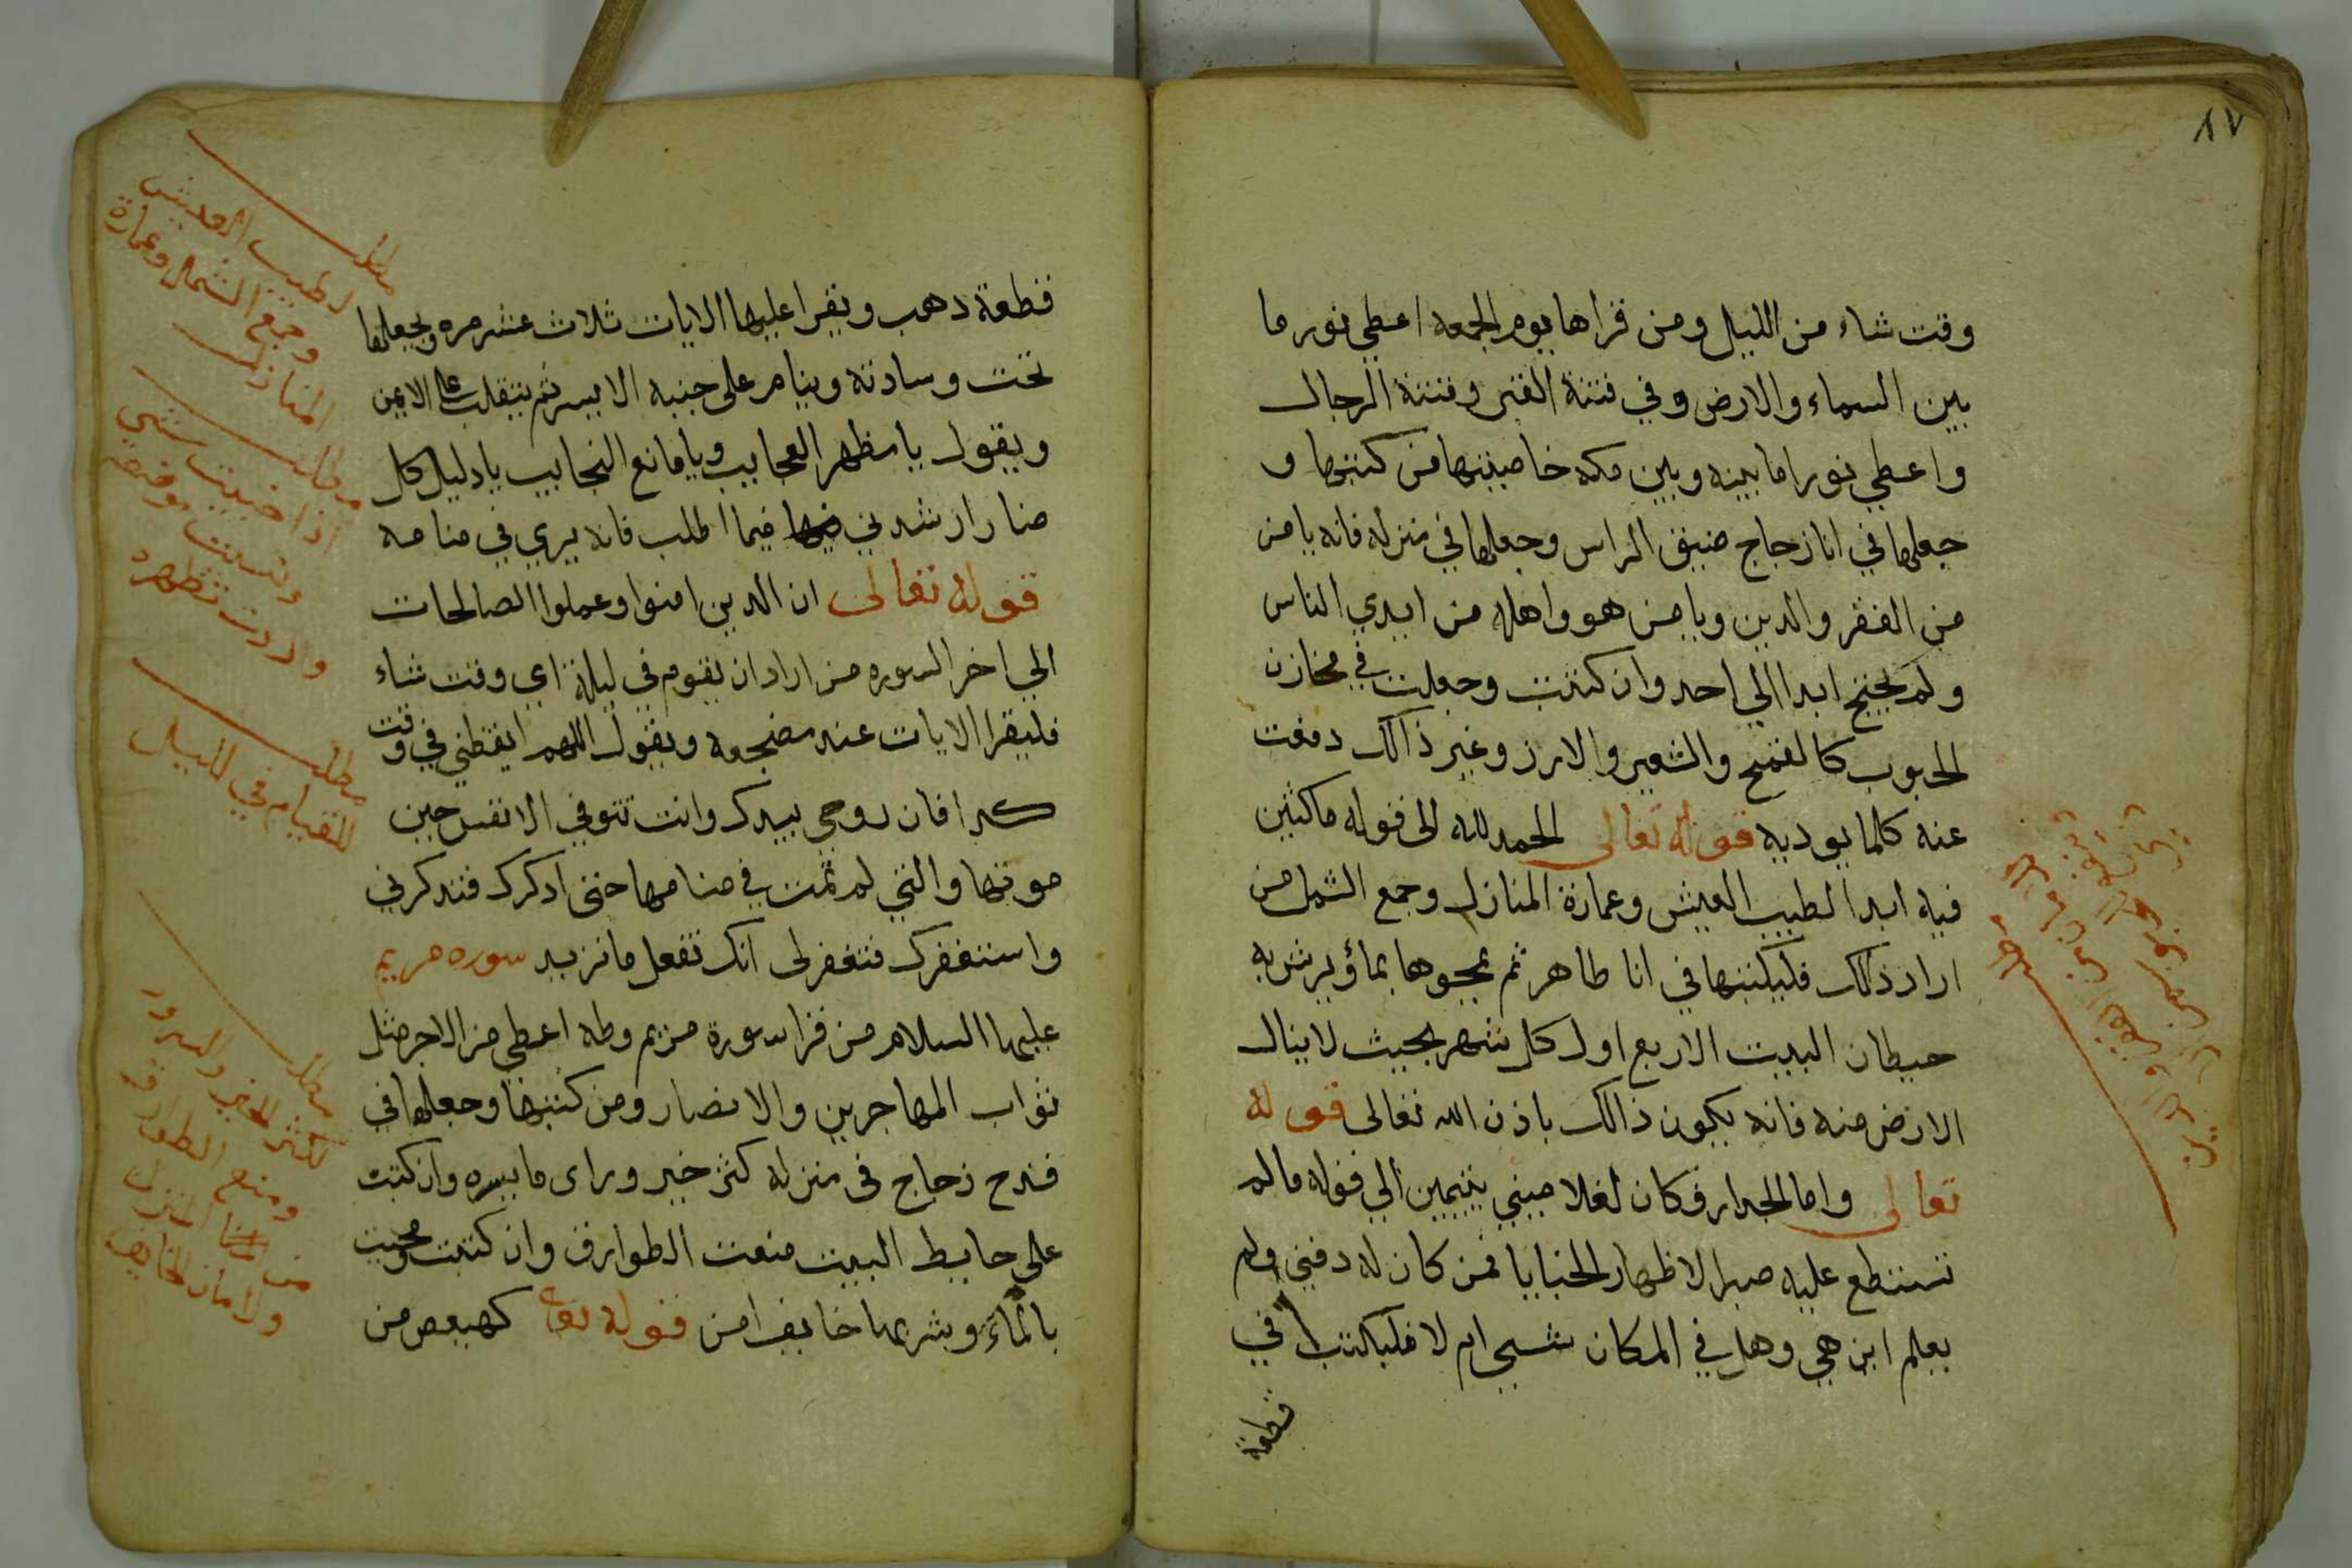 ٨٧
وقت شاء من الليل ومن قراها يوم الجمعه اعطي نور ما
بين السماء والارض وفي فتنة القبر وفتنة الرجال
واعطي نورا ما بينه وبين مكه خاصيتها من كتبها و
جعلها في انا زجاج ضيق الراس وجعلها في منزله فانه يامن
من الفقر والدين ويامن هو واهله من ايدي الناس
ولم يحتج ابدا الي احد وان كتبت وجعلت في مخازن
الحبوب كالقمح والشعير والارز وغير ذالك دفعت
عنه كلما يوديه قوله تعالى الحمد لله الى قوله ماكثين
فيه ابدا لطيب العيش وعمارة المنازل وجمع الشمل من
اراد ذالك فليكتبها في انا طاهر ثم يمحوها بماؤ يرش به
حيطان البيت الاربع اول كل شهر بحيث لا ينال
الارض منه فانه يكون ذالك باذن الله تعالى قوله
تعالى واما الجدار فكان لغلامين يتيمين الي قوله ما لم
تستطع عليه صبرا لاظهار الخبايا فمن كان له دفين ولم
يعلم اين هي وهل في المكان شي ام لا فليكتب في
قطعة
قطعة دهب ويقرا عليها الايات ثلاث عشر مره ويجعلها
تحت وسادته وينام على جنبه الايسر ثم يتقلب على الايمن
ويقول يا مظهر العجايب ويا مانع النجايب يا دليل كل
ضار ارشدني فيما اطلب فانه يري في منامه
قوله تعالى ان الدين امنوا وعملوا الصالحات
الي اخر السوره من اراد ان يقوم في ليلة اي وقت شاء
فليقرا الايات عند مضجعه ويقول اللهم ايقظني في وقت
كدا فان روحي بيدك وانت تتوفي الانفس حين
موتها والتي لم تمت في منامها حتى ادكرك فتدكرني
واستغفرك فتغفر لى انك تفعل ما تريد سوره مريم
عليها السلام من قرا سورة مريم وطه اعطي من الاجر مثل
ثواب المهاجرين والانصار ومن كتبها وجعلها في
قدح زجاج في منزله كثر خير وراى ما يسره وان كتبت
على حايط البيت منعت الطوارق وان كتبت ومحيت
بالماء وشربها خايف امن قوله تعا كهيعص من
مطلب
لطيب العيش
وجمع الشمل وعمارة
المنازل
مطلب
اذا خبيت شي
ونسيت موضعه
واردت تظهره
مطلب
للقيام في الليل
مطلب
لكثر الخير والسرور
ومنع الطوارق
من المنزل
ولامان الخايف